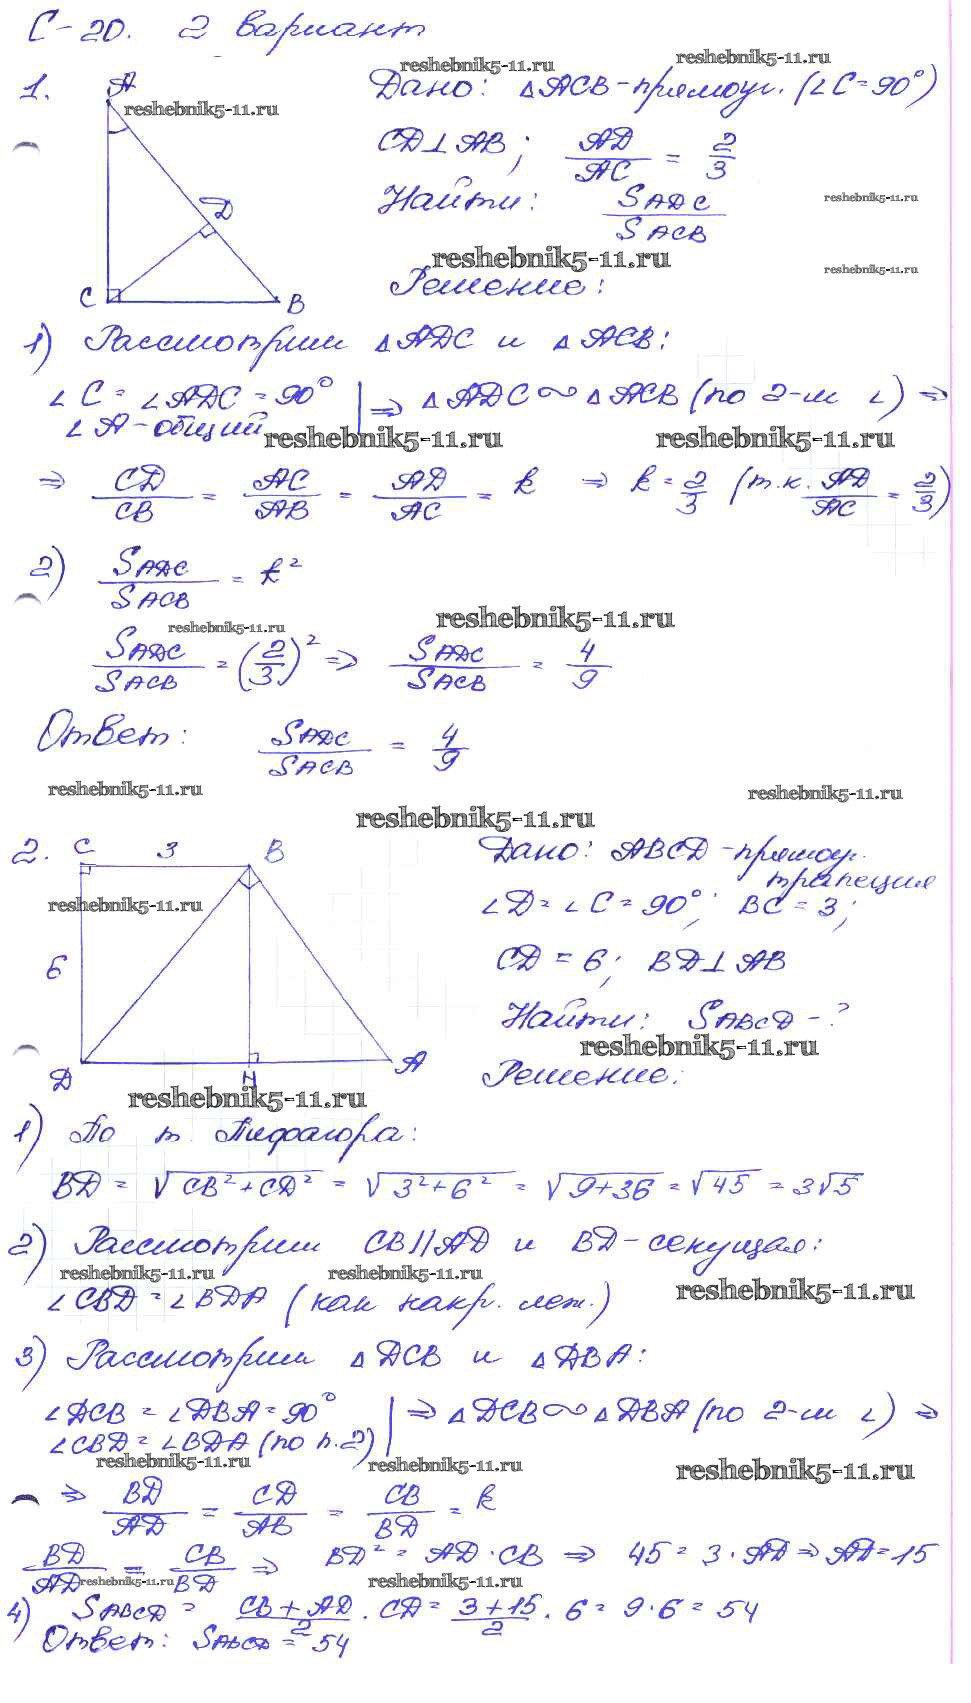 С-20. 2 вариант
reshebnik5-11.ru
reshebnik5-11.ru
1.
A
reshebnik5-11.ru
D
C
B
Дано: △ACB-прямоуг. (∠C=90°)
CD⊥AB; AD/AC = 2/3
Найти: S ADC / S ACB
reshebnik5-11.ru
reshebnik5-11.ru
reshebnik5-11.ru
Решение:
1) Рассмотрим △ADC и △ACB:
∠C = ∠ADC = 90° | ⇒ △ADC ∾ △ACB (по 2-м ∠) ⇒
∠A-общий
reshebnik5-11.ru
reshebnik5-11.ru
⇒ CD/CB = AC/AB = AD/AC = k ⇒ k = 2/3 (т.к. AD/AC = 2/3)
2) S ADC / S ACB = k²
reshebnik5-11.ru
reshebnik5-11.ru
S ADC / S ACB = (2/3)² ⇒ S ADC / S ACB = 4/9
Ответ: S ADC / S ACB = 4/9
reshebnik5-11.ru
reshebnik5-11.ru
reshebnik5-11.ru
2.
C 3 B
reshebnik5-11.ru
6
D H A
reshebnik5-11.ru
Дано: ABCD-прямоуг.
трапеция
∠D = ∠C = 90°; BC = 3;
CD = 6; BD⊥AB
Найти: S ABCD - ?
reshebnik5-11.ru
Решение:
1) По т. Пифагора:
BD = √(CB²+CD²) = √(3²+6²) = √(9+36) = √45 = 3√5
2) Рассмотрим CB||AD и BD-секущая:
reshebnik5-11.ru
reshebnik5-11.ru
reshebnik5-11.ru
∠CBD = ∠BDA (как накр. леж.)
3) Рассмотрим △DCB и △DBA:
∠DCB = ∠DBA = 90° | ⇒ △DCB ∾ △DBA (по 2-м ∠) ⇒
∠CBD = ∠BDA (по п.2)
reshebnik5-11.ru
reshebnik5-11.ru
reshebnik5-11.ru
⇒ BD/AD = CD/AB = CB/BD = k
BD/AD = CB/BD ⇒ BD² = AD · CB ⇒ 45 = 3 · AD ⇒ AD = 15
reshebnik5-11.ru
reshebnik5-11.ru
4) S ABCD = (CB + AD)/2 · CD = (3+15)/2 · 6 = 9·6 = 54
Ответ: S ABCD = 54